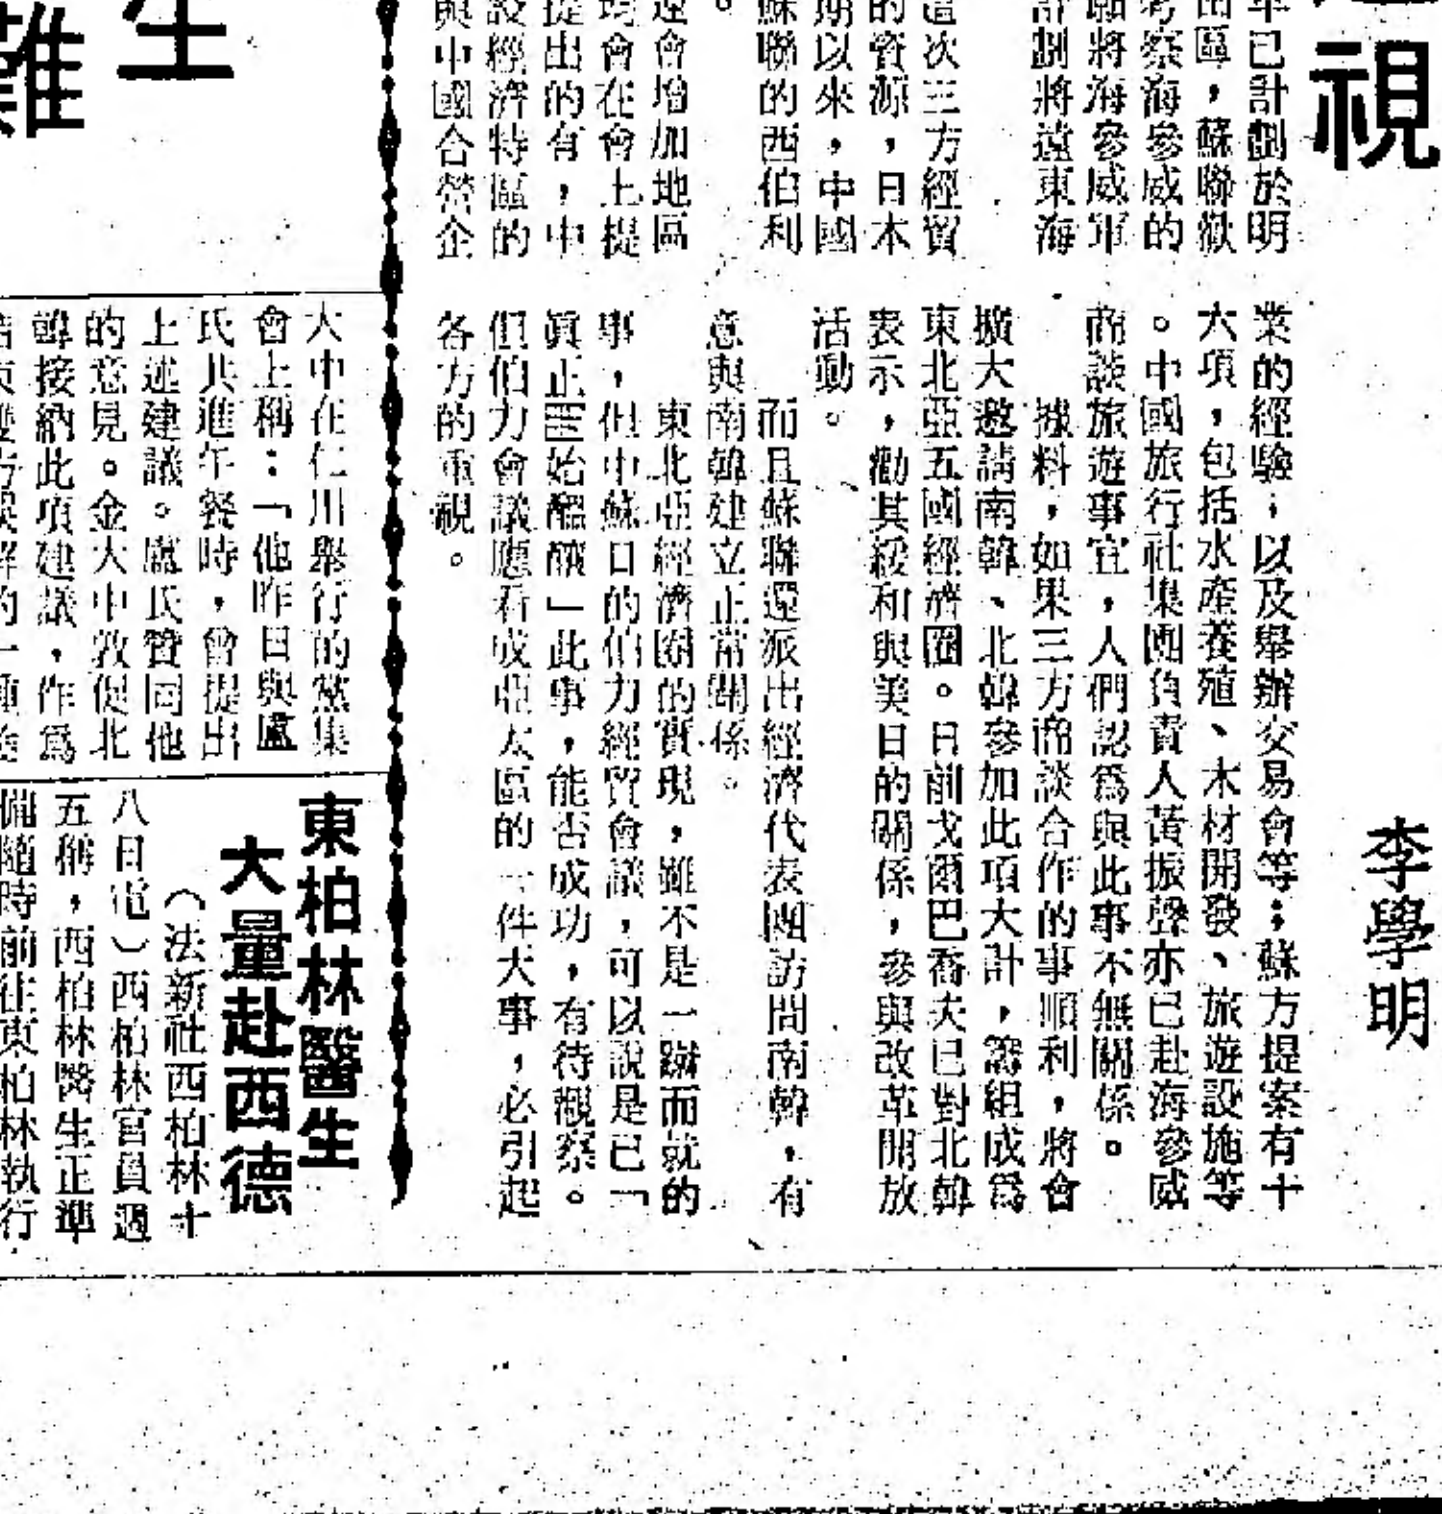 視
李學明
年已計劃於明
出區，蘇聯歡
考察海參威的
願將海參威軍
計劃將遠東海
這次三方經貿
的資源，日本
期以來，中國
蘇聯的西伯利
。
還會增加地區
均會在會上提
提出的有，中
設經濟特區的
與中國合營企
業的經驗；以及舉辦交易會等；蘇方提案有十
六項，包括水產養殖、木材開發、旅遊設施等
。中國旅行社集團負責人黃振聲亦已赴海參威
商談旅遊事宜，人們認爲與此事不無關係。
據料，如果三方商談合作的事順利，將會
擴大邀請南韓、北韓參加此項大計，籌組成爲
東北亞五國經濟圈。日前戈爾巴喬夫已對北韓
表示，勸其緩和與美日的關係，參與改革開放
活動。
而且蘇聯還派出經濟代表團訪問南韓，有
意與南韓建立正常關係。
東北亞經濟圈的實現，雖不是一蹴而就的
事，但中蘇日的伯力經貿會議，可以說是已「
眞正開始醞釀」此事，能否成功，有待觀察。
但伯力會議應看成亞太區的一件大事，必引起
各方的重視。
生
難
大中在仁川舉行的黨集
會上稱：「他昨日與盧
氏共進午餐時，曾提出
上述建議。盧氏贊同他
的意見。金大中敦促北
韓接納此項建議，作爲
東柏林醫生
大量赴西德
（法新社西柏林十
八日電）西柏林官員週
五稱，西柏林醫生正準
備隨時前往東柏林執行